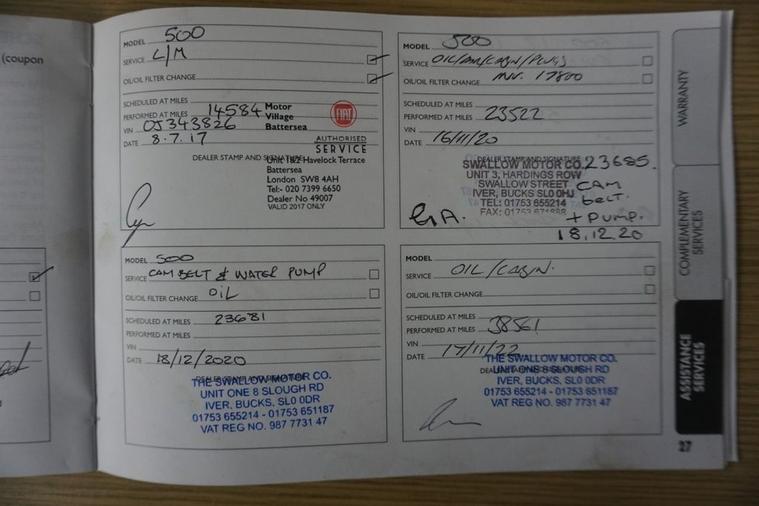 (coupon
MODEL 500
SERVICE L/M
OIL/OIL FILTER CHANGE
SCHEDULED AT MILES
PERFORMED AT MILES 14584
VIN OJ343826
DATE 8.7.17
Motor
Village
Battersea
FIAT
AUTHORISED
SERVICE
DEALER STAMP AND SIGNATURE
Unit 1&2 Havelock Terrace
Battersea
London SW8 4AH
Tel:- 020 7399 6650
Dealer No 49007
VALID 2017 ONLY
MODEL 500
SERVICE OIL/AIR/CABIN/PLUGS
OIL/OIL FILTER CHANGE 17800
SCHEDULED AT MILES
PERFORMED AT MILES 23522
VIN
DATE 16/11/20
DEALER STAMP AND SIGNATURE
SWALLOW MOTOR CO.
UNIT 3, HARDINGS ROW
SWALLOW STREET
IVER, BUCKS SL0 0HJ
TEL: 01753 655214
FAX: 01753
23685.
CAM
belt.
+ pump.
18.12.20
MODEL 500
SERVICE CAM BELT & WATER PUMP
OIL/OIL FILTER CHANGE OIL
SCHEDULED AT MILES 23681
PERFORMED AT MILES
VIN
DATE 18/12/2020
DEALER STAMP AND SIGNATURE
THE SWALLOW MOTOR CO.
UNIT ONE 8 SLOUGH RD
IVER, BUCKS, SL0 0DR
01753 655214 - 01753 651187
VAT REG NO. 987 7731 47
MODEL
SERVICE OIL/CABIN.
OIL/OIL FILTER CHANGE
SCHEDULED AT MILES
PERFORMED AT MILES 38561
VIN
DATE 17/11/22
DEALER STAMP AND SIGNATURE
THE SWALLOW MOTOR CO.
UNIT ONE 8 SLOUGH RD
IVER, BUCKS, SL0 0DR
01753 655214 - 01753 651187
VAT REG NO. 987 7731 47
WARRANTY
COMPLEMENTARY
SERVICES
ASSISTANCE
SERVICES
27